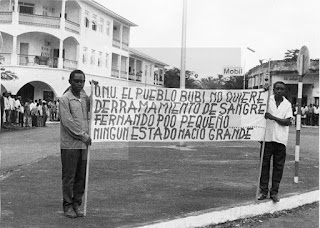 Mobil
ONU. EL PUEBLO BUBI NO QUIERE
DERRAMAMIENTO DE SANGRE
FERNANDO POO PEQUEÑO
NINGUN ESTADO NACIO GRANDE